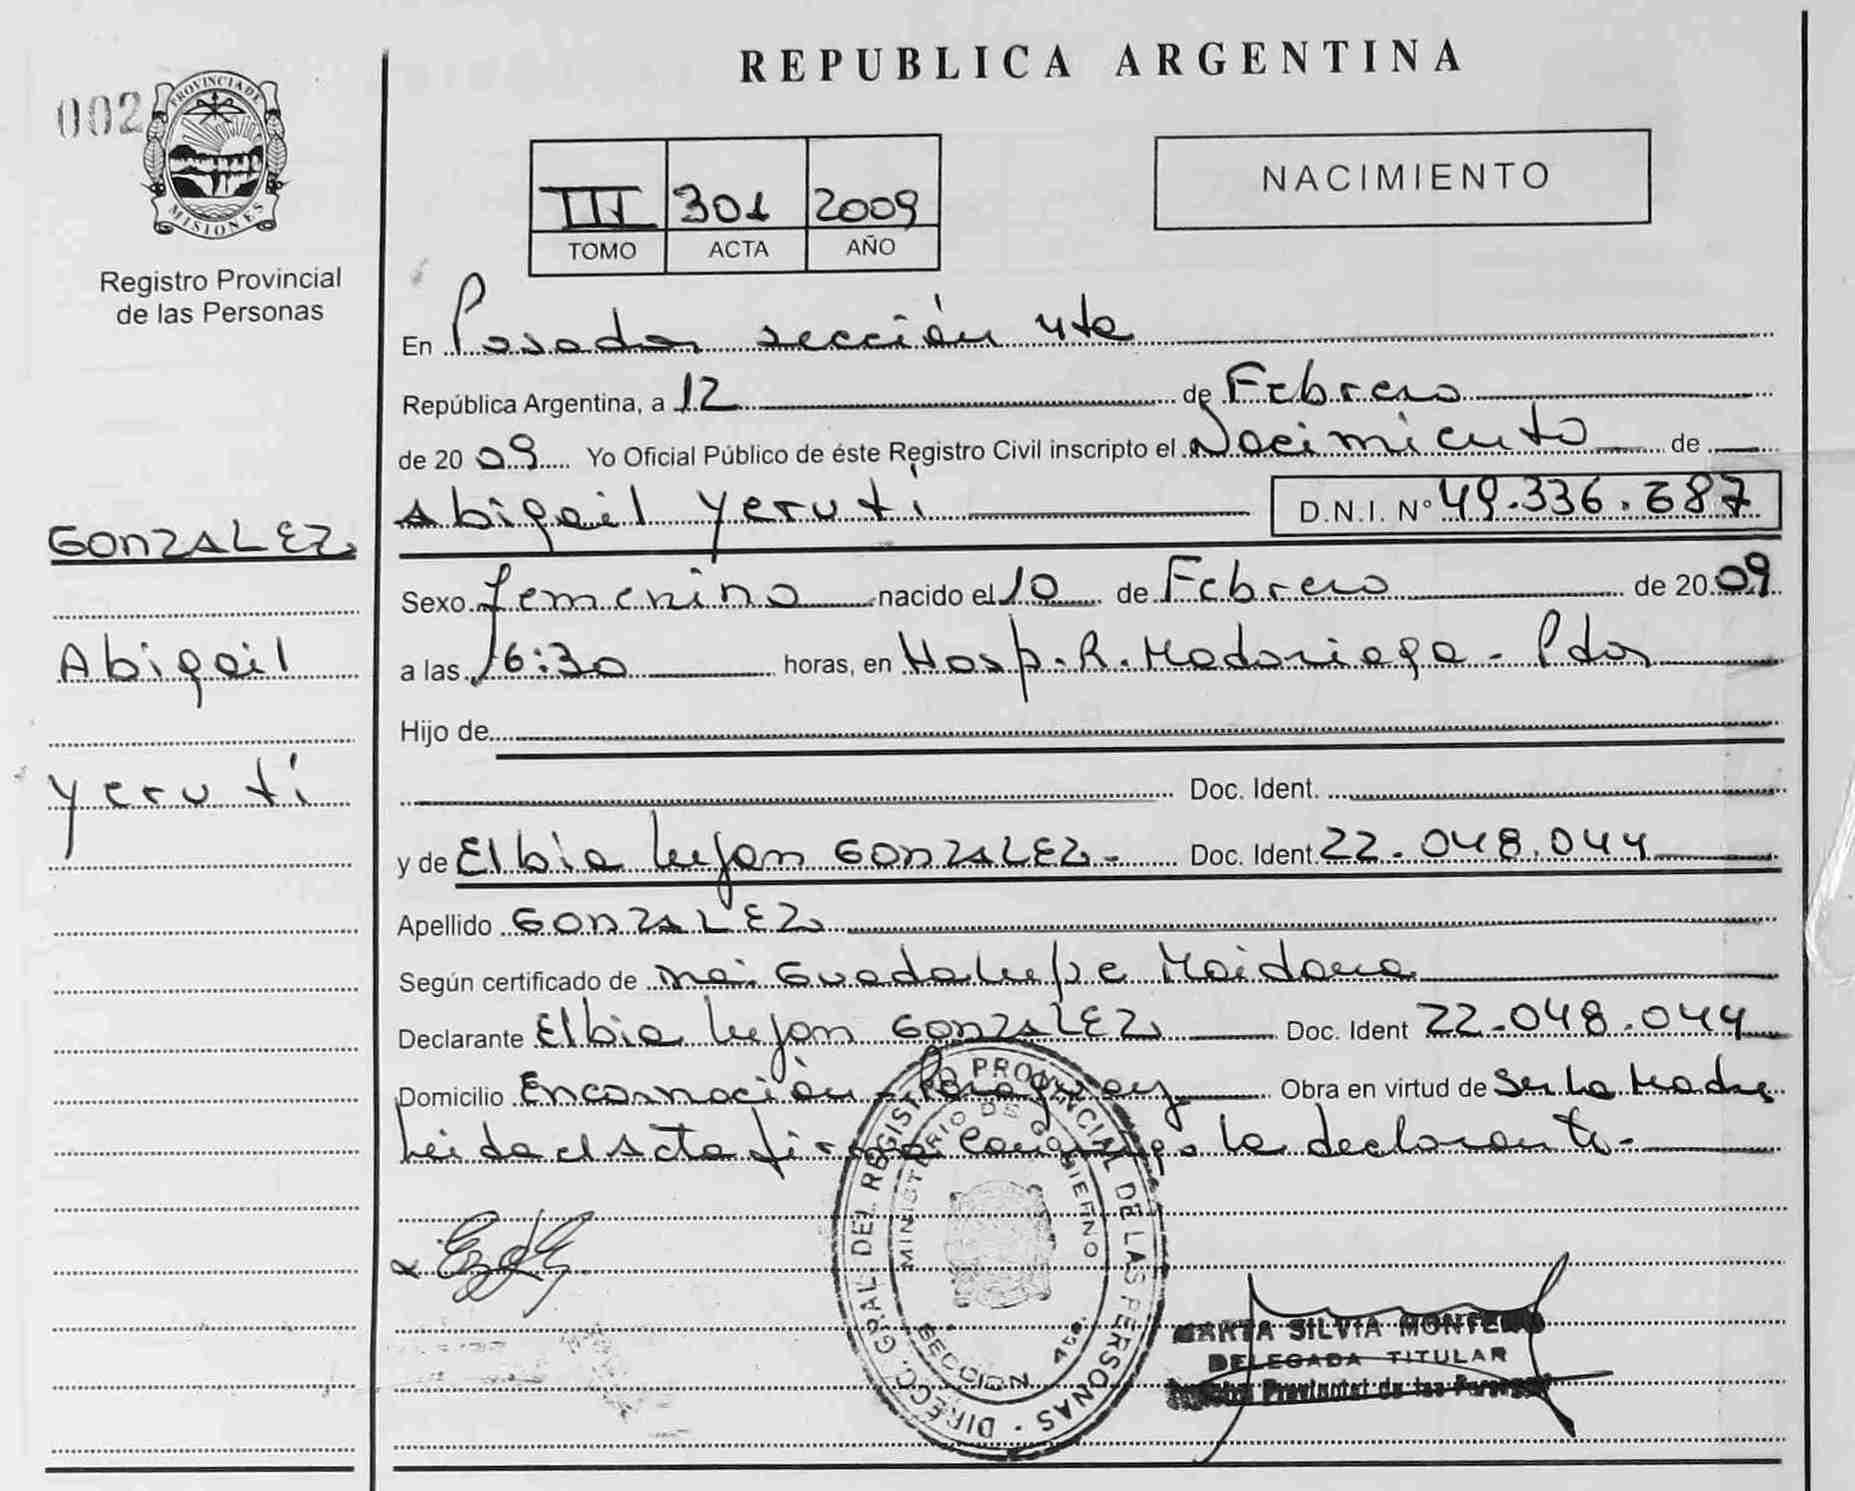 REPUBLICA ARGENTINA
002
PROVINCIA DE
MISIONES
Registro Provincial
de las Personas
III 301 2009
TOMO ACTA AÑO
NACIMIENTO
En Posadas sección 4ta
República Argentina, a 12 de Febrero
de 20 09 Yo Oficial Público de éste Registro Civil inscripto el Nacimiento de
Abigail Yerutí D.N.I. N° 49.336.687
GONZALEZ
Abigail
Yerutí
Sexo femenino nacido el 10 de Febrero de 20 09
a las 16:30 horas, en Hosp. R. Madariaga - Pdas
Hijo de
Doc. Ident.
y de Elbia Lujan GONZALEZ - Doc. Ident. 22.048.044
Apellido GONZALEZ
Según certificado de Guadalupe Maidana
Declarante Elbia Lujan GONZALEZ Doc. Ident 22.048.044
Domicilio Encarnación - Paraguay Obra en virtud de Ser la Madre
Leída el Acta firma conmigo la declarante -
DIRECC. GRAL DEL REGISTRO PROVINCIAL DE LAS PERSONAS
MINISTERIO DE GOBIERNO
SECCION 4ta.
MARTA SILVIA MONTERO
DELEGADA TITULAR
Registro Provincial de las Personas